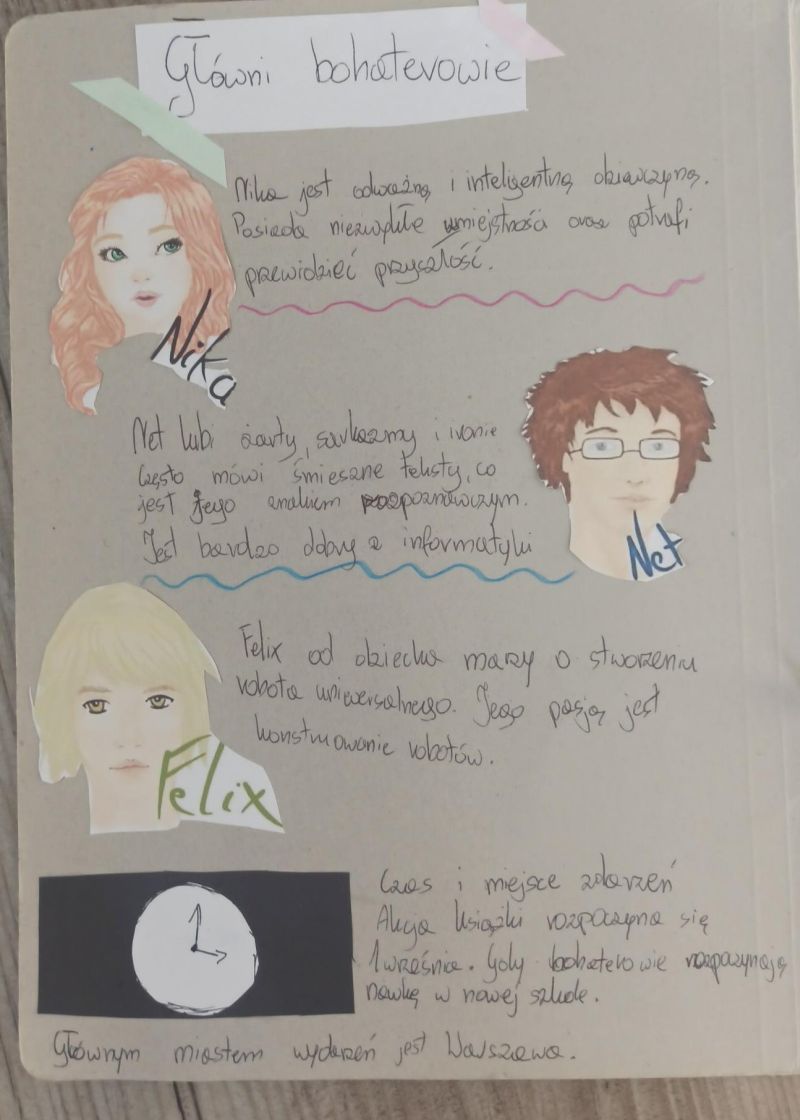 Główni bohaterowie
Nika jest odważną i inteligentną dziewczyną.
Posiada niezwykłe umiejętności oraz potrafi
przewidzieć przyszłość.
Nika
Net lubi żarty, sarkazmy i ironie
Często mówi śmieszne teksty, co
jest jego znakiem rozpoznawczym.
Jest bardzo dobry z informatyki
Net
Felix od dziecka marzy o stworzeniu
robota uniwersalnego. Jego pasją jest
konstruowanie robotów.
Felix
Czas i miejsce zdarzeń
Akcja książki rozpoczyna się
1 września. Gdy bohaterowie rozpoczynają
naukę w nowej szkole.
Głównym miastem wydarzeń jest Warszawa.